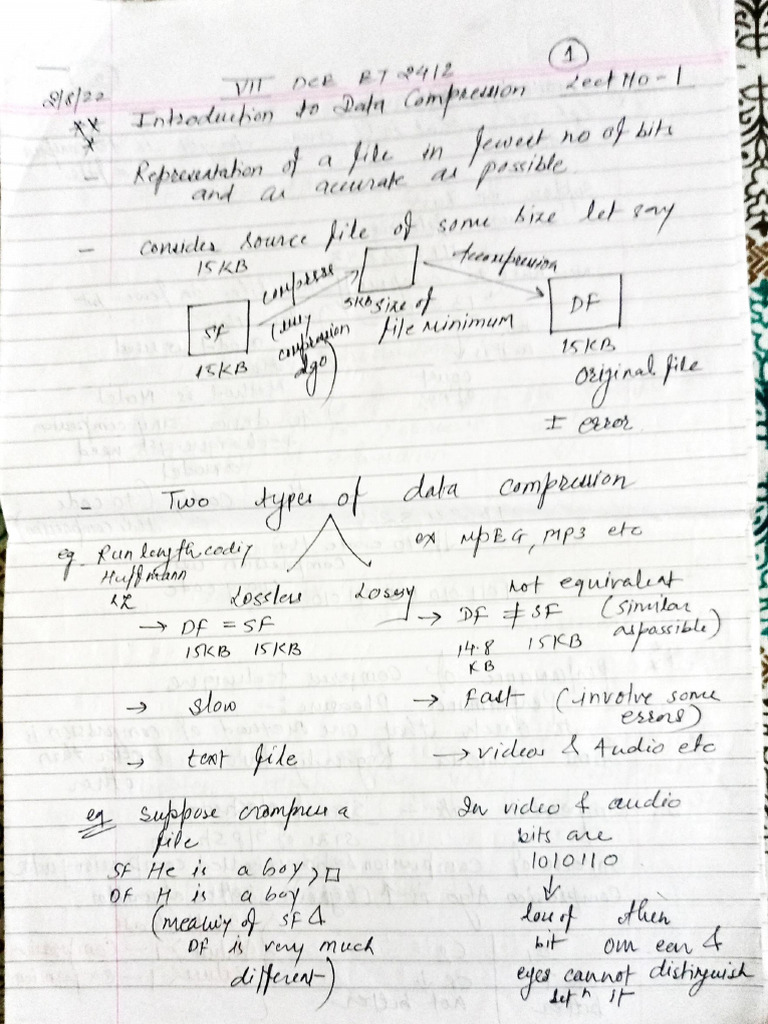 1
2/8/22 VII DCE ET 2412
Introduction to Data Compression Lect No-1
- Representation of a file in fewest no of bits
and as accurate as possible
- Consider source file of some size let say
15KB
compress
decompression
SF
(any compression algo)
5KB size of
file minimum
DF
15KB
15KB
original file
± error
- Two types of data compression
eg. Run length coding
Huffmann
LZ
ex MPEG, MP3 etc
Lossless
Lossy
not equivalent
→ DF = SF
15KB 15KB
→ DF ≠ SF (similar
as possible)
14.8 KB 15KB
→ slow
→ fast (involve some
errors)
→ text file
→ videos & Audio etc
eg suppose compress a
file
SF He is a boy
DF H is a boy
(meaning of SF &
DF is very much
different)
In video & audio
bits are
1010110
↓
loss of then
bit our ear &
eyes cannot distinguish
it